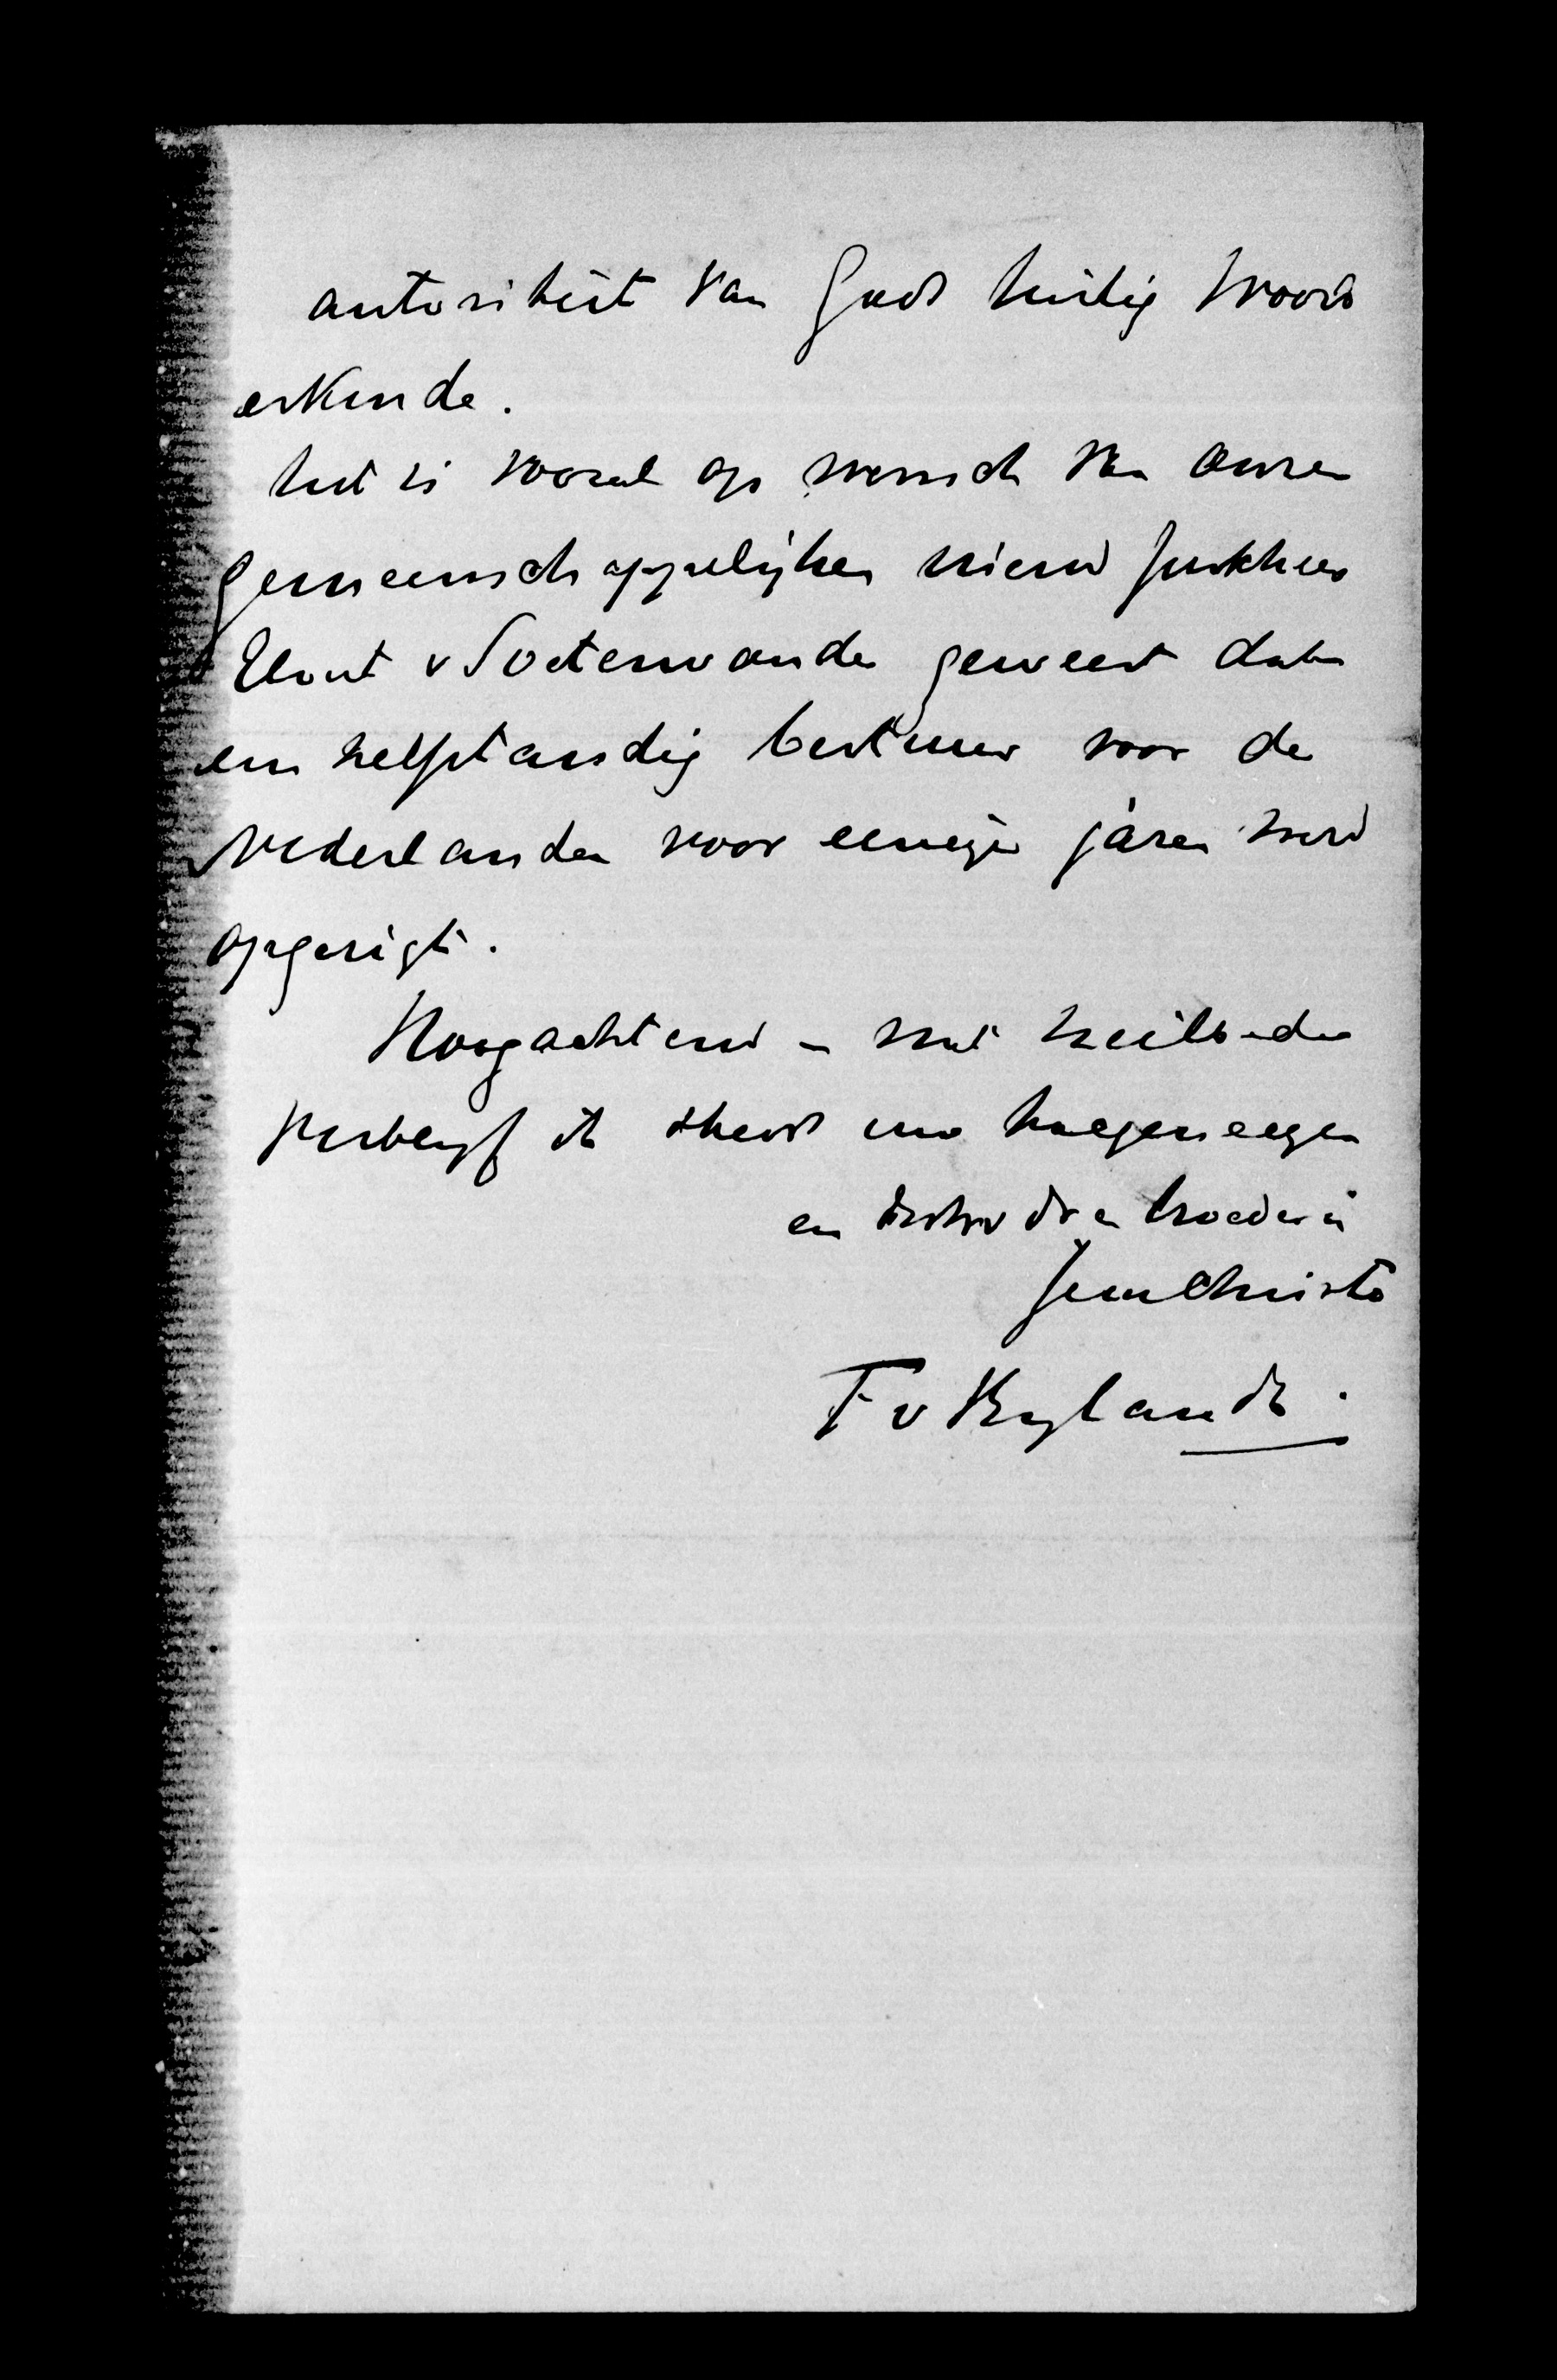 autoriteit van Gods heilig Woord
erkende.
het is vooral op wensch van onzen
gemeenschappelijken vriend Jonkheer
Elout v Soeterwoude geweest dat
een zelfstandig bestuur voor de
Nederlanden voor eenige jaren werd
opgerigt.
Hoogachtend – met heilbede
verblijf ik steeds uw toegenegen
en broeder in
Jesu Christo
F v Bylandt.